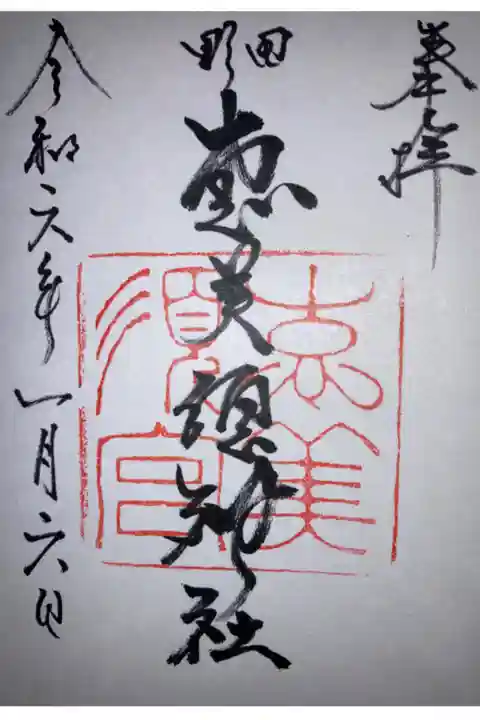 奉拝
野田
恵美須神社
令和六年一月六日
恵美
須宮